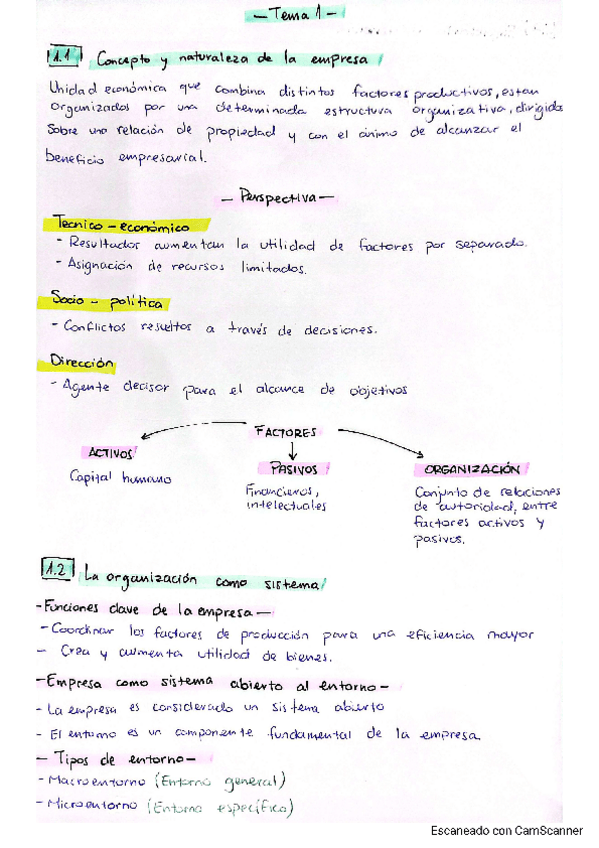 - Tema 1 -
1.1 Concepto y naturaleza de la empresa
Unidad económica que combina distintos factores productivos, estan
organizados por una determinada estructura organizativa, dirigida
sobre una relación de propiedad y con el ánimo de alcanzar el
beneficio empresarial.
- Perspectiva -
Tecnico - económico
- Resultador aumentan la utilidad de factores por separado.
- Asignación de recursos limitados.
Socio - política
- Conflictos resueltos a través de decisiones.
Dirección
- Agente decisor para el alcance de objetivos
FACTORES
ACTIVOS
Capital humano
PASIVOS
Financieros,
intelectuales
ORGANIZACIÓN
Conjunto de relaciones
de autoridad, entre
factores activos y
pasivos.
1.2 La organización como sistema
- Funciones clave de la empresa -
- Coordinar los factores de producción para una eficiencia mayor
- Crea y aumenta utilidad de bienes.
- Empresa como sistema abierto al entorno -
- La empresa es considerado un sistema abierto
- El entorno es un componente fundamental de la empresa.
- Tipos de entorno -
- Macroentorno (Entorno general)
- Microentorno (Entorno específico)
Escaneado con CamScanner